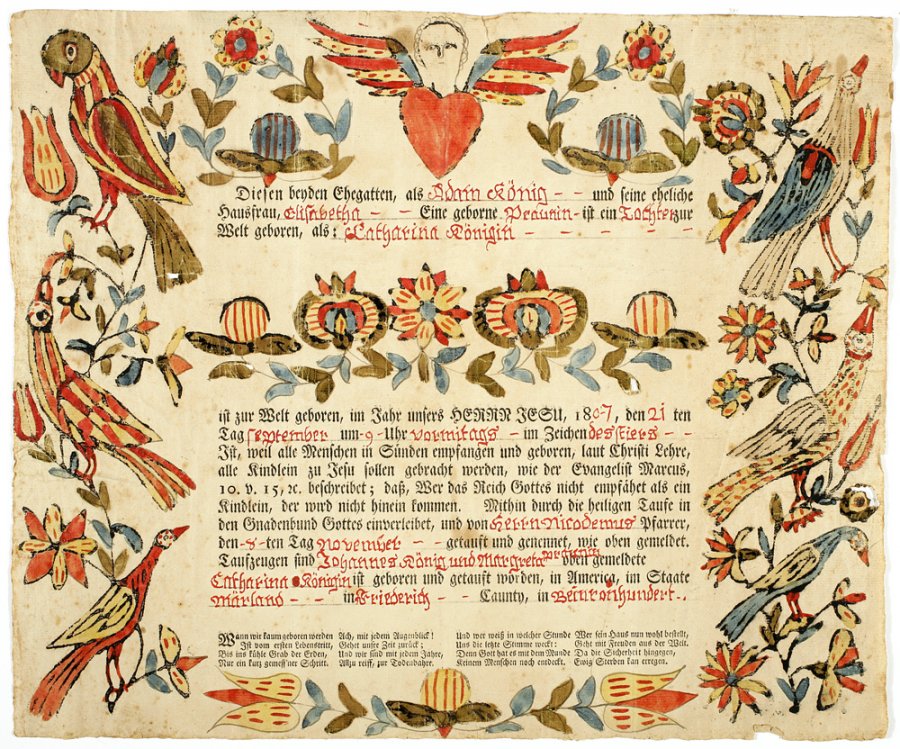 Diesen beyden Ehegatten, als Adam König - - und seine eheliche
Hausfrau, Elisabetha - - Eine geborne Preusin - ist ein Tochter zur
Welt geboren, als: Catharina Königin - - - - -
ist zur Welt geboren, im Jahr unsers HERRN JESU, 1807, den 21 ten
Tag September um - 9 - Uhr vormitags - im Zeichen des stiers - -
Ist, weil alle Menschen in Sünden empfangen und geboren, laut Christi Lehre,
alle Kindlein zu Jesu sollen gebracht werden, wie der Evangelist Marcus,
10. v. 15, ꝛc. beschreibet; daß, Wer das Reich Gottes nicht empfähet als ein
Kindlein, der wird nicht hinein kommen. Mithin durch die heiligen Taufe in
den Gnadenbund Gottes einverleibet, und von Herrn Nicodemus Pfarrer,
den - 8 - ten Tag November - - getauft und genennet, wie oben gemeldet.
Taufzeugen sind Johannes König und Margreta oben gemeldete
Catharina Königin ist geboren und getauft worden, in America, im Staate
Marland - - - in Friederich - - Caunty, in hundert.
Wann wir kaum geboren werden
Ist vom ersten Lebenstritt,
Bis ins kühle Grab der Erden,
Nur ein kurz gemess'ner Schritt.
Ach, mit jedem Augenblick!
Gehet unsre Zeit zurück;
Und wir sind mit jedem Jahre,
Allzu reiff, zur Todenbahre.
Und wer weiß in welcher Stunde
Uns die letzte Stimme weckt:
Denn Gott hat es mit dem Munde
Keinem Menschen noch endeckt.
Wer sein Haus nun wohl bestellt,
Geht mit Freuden aus der Welt.
Da die Sicherheit hingegen,
Ewig Sterben kan erregen.